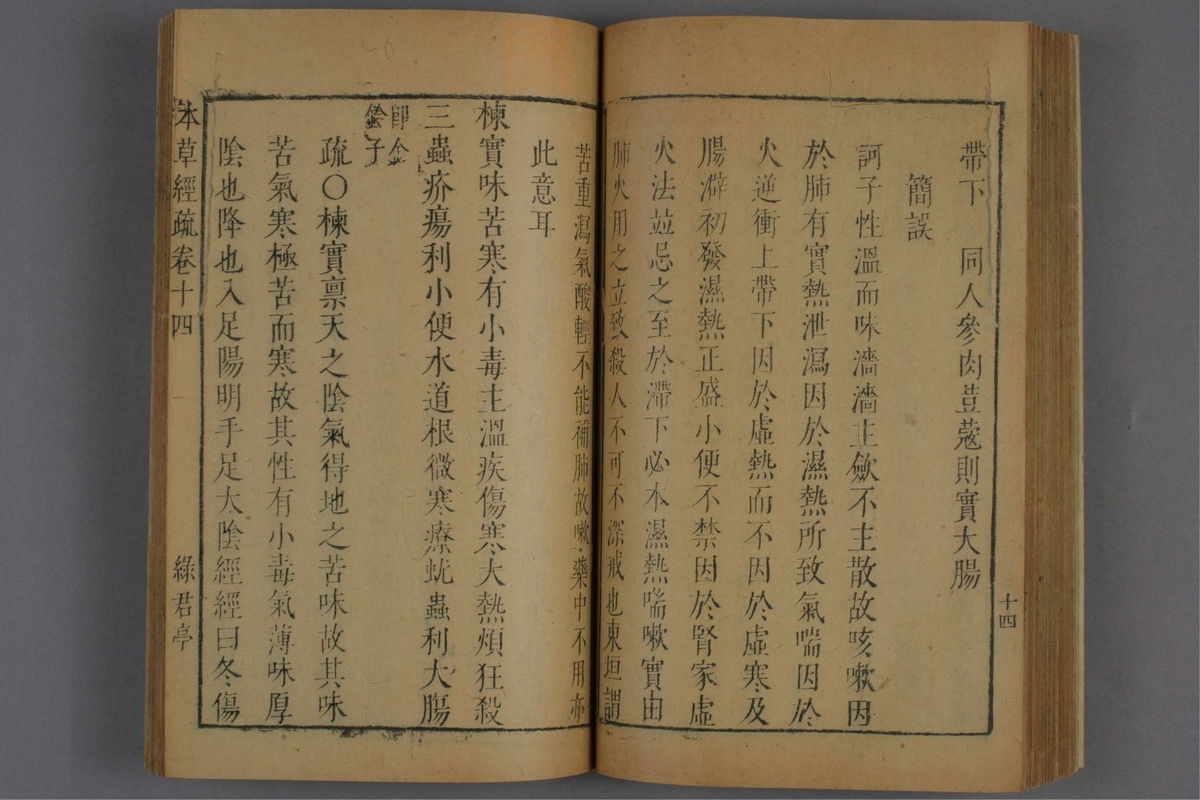 帶下　同人參肉荳蔻則實大腸
簡誤
訶子性溫而味濇濇主斂不主散故咳嗽因
於肺有實熱泄瀉因於濕熱所致氣喘因於
火逆衝上帶下因於虛熱而不因於虛寒及
腸澼初發濕熱正盛小便不禁因於腎家虛
火法並忌之至於滯下必本濕熱喘嗽實由
肺火用之立致殺人不可不深戒也東垣謂
十四
苦重瀉氣酸輕不能補肺故嗽藥中不用亦
此意耳
楝實味苦寒有小毒主溫疾傷寒大熱煩狂殺
三蟲疥瘍利小便水道根微寒療蚘蟲利大腸
即金
鈴子
疏〇楝實禀天之陰氣得地之苦味故其味
苦氣寒極苦而寒故其性有小毒氣薄味厚
陰也降也入足陽明手足太陰經經曰冬傷
本草經疏卷十四　綠君亭